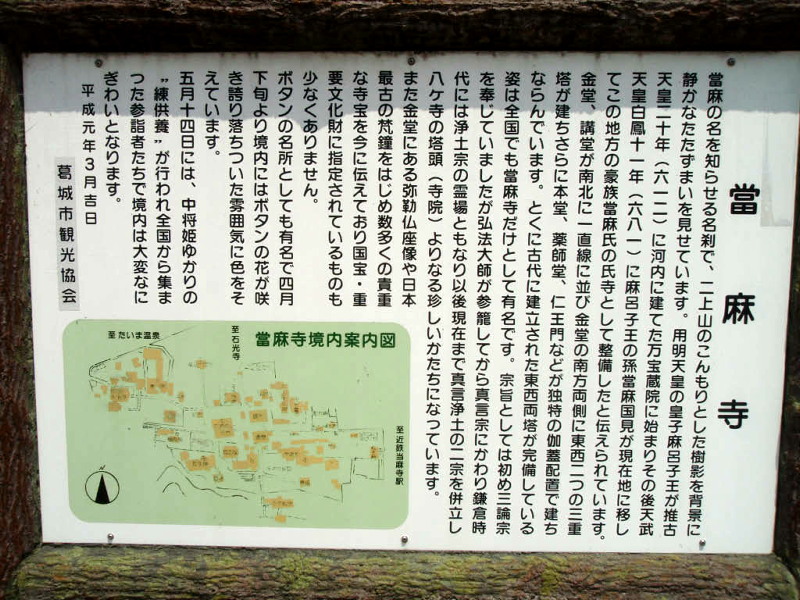 當麻寺
當麻の名を知らせる名刹で、二上山のこんもりとした樹影を背景に
静かなたたずまいを見せています。用明天皇の皇子麻呂子王が推古
天皇二十年（六一二）に河内に建てた万宝蔵院に始まりその後天武
天皇白鳳十一年（六八一）に麻呂子王の孫當麻国見が現在地に移し
てこの地方の豪族當麻氏の氏寺として整備したと伝えられています。
金堂、講堂が南北に一直線に並び金堂の南方両側に東西二つの三重
塔が建ちさらに本堂、薬師堂、仁王門などが独特の伽蓋配置で建ち
ならんでいます。とくに古代に建立された東西両塔が完備している
姿は全国でも當麻寺だけとして有名です。宗旨としては初め三論宗
を奉じていましたが弘法大師が参籠してから真言宗にかわり鎌倉時
代には浄土宗の霊場ともなり以後現在まで真言浄土の二宗を併立し
八ケ寺の塔頭（寺院）よりなる珍しいかたちになっています。
また金堂にある弥勒仏座像や日本
最古の梵鐘をはじめ数多くの貴重
な寺宝を今に伝えており国宝・重
要文化財に指定されているものも
少なくありません。
ボタンの名所としても有名で四月
下旬より境内にはボタンの花が咲
き誇り落ちついた雰囲気に色をそ
えています。
五月十四日には、中将姫ゆかりの
〝練供養〟が行われ全国から集ま
った参詣者たちで境内は大変なに
ぎわいとなります。
平成元年３月吉日
葛城市観光協会
當麻寺境内案内図
至石光寺
至たいま温泉
至近鉄当麻寺駅